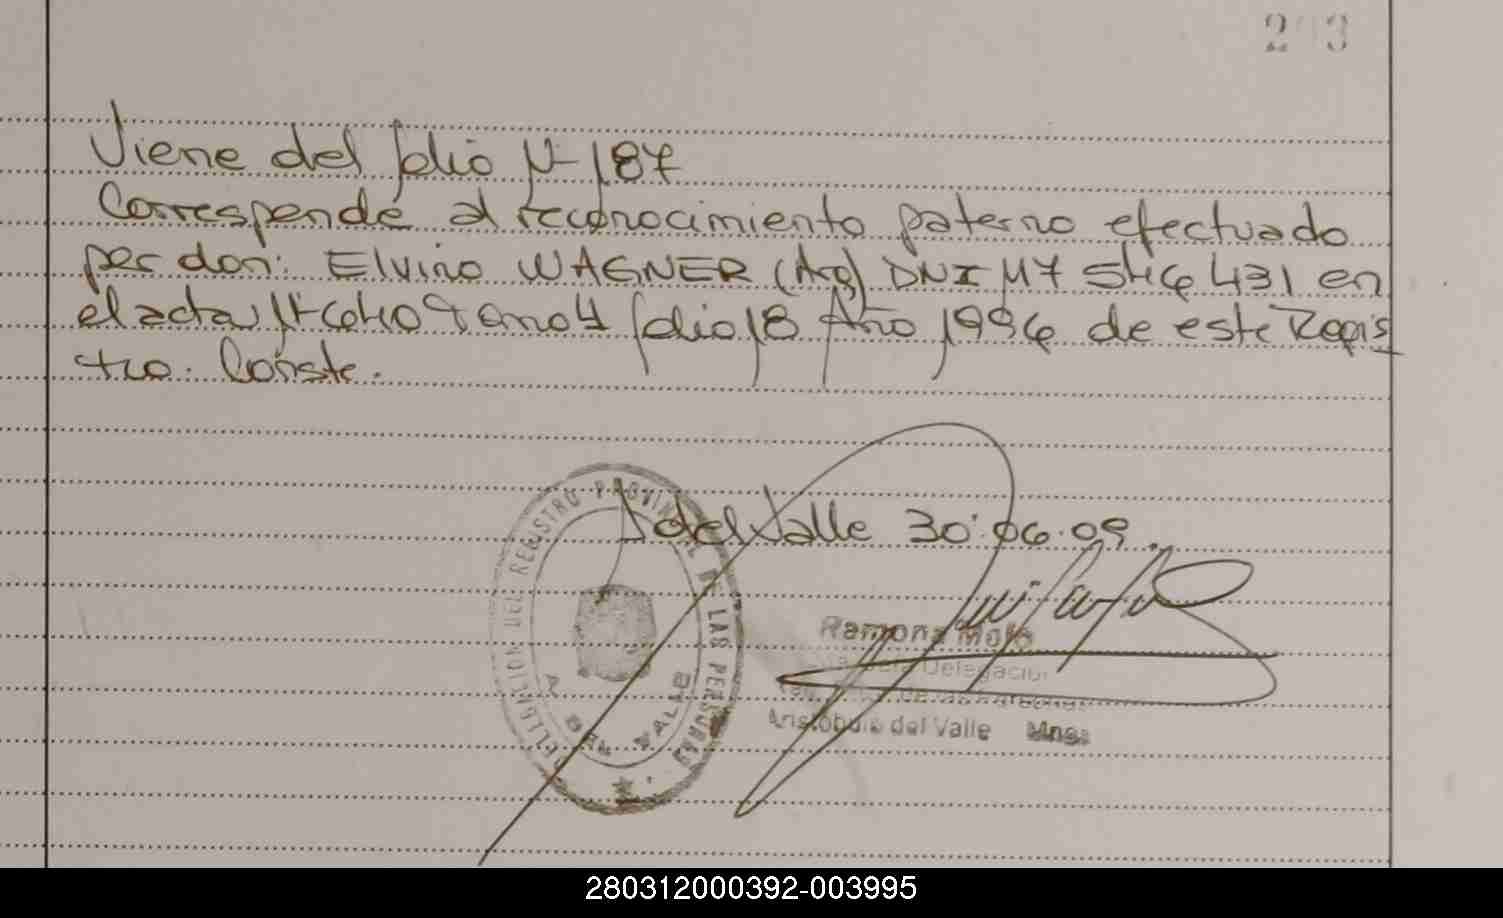 203
Viene del folio Nº 187
Corresponde al reconocimiento paterno efectuado
por don: Elvino WAGNER (Arg) DNI M7 546 431 en
el acta Nº 640 Tomo 4 folio 18 Año 1996 de este Regis
tro. Conste.
A del Valle 30.06.09.
DELEGACION DEL REGISTRO PROVINCIAL DE LAS PERSONAS
A. DEL VALLE
Ramona
Delegación
de las Personas
Aristóbulo del Valle Mnes
280312000392-003995